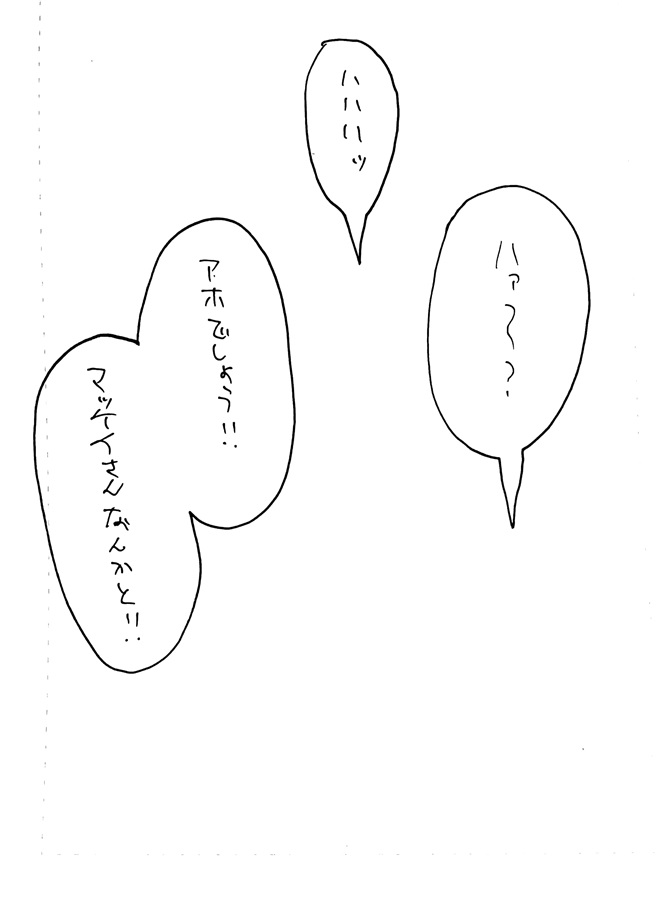 ハァ〜？
ハハハッ
アホでしょう!!
マッケイさんなんかと!!